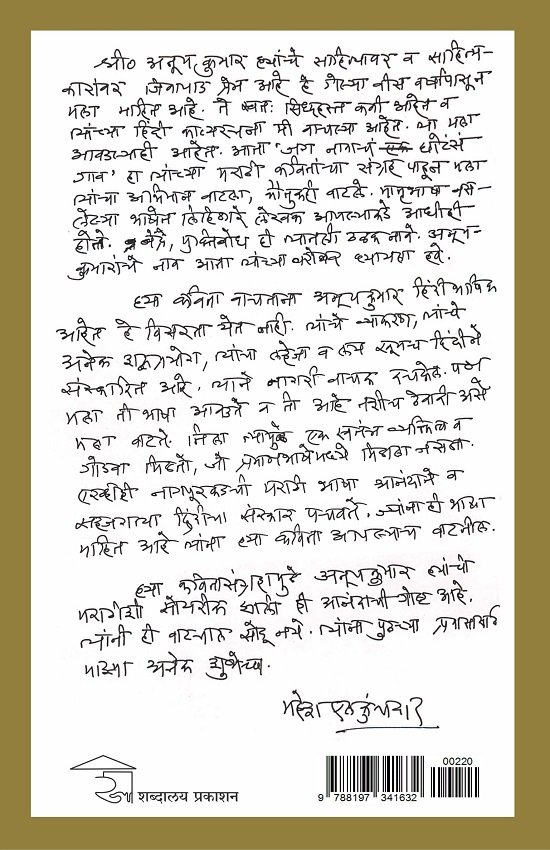 श्री० अनूप कुमार ह्यांचे साहित्यावर व साहित्य-
कारांवर जिवापाड प्रेम आहे हे गेल्या वीस वर्षांपासून
मला माहित आहे. ते स्वतः सिध्दहस्त कवी आहेत व
त्यांच्या हिंदी काव्यरचना मी वाचल्या आहेत. त्या मला
आवडल्याही आहेत. आता 'जग नावाचं एक छोटंसं
गाव' हा त्यांच्या मराठी कवितांचा संग्रह पाहून मला
त्यांचा अभिमान वाटला, कौतुकही वाटले. मातृभाषा नस-
लेल्या भाषेत लिहिणारे लेखक आपल्याकडे आधीही
होते. मुक्तिबोध हे त्यातली ठळक नावे. अनूप-
कुमारांचे नाव आता त्यांच्या बरोबर घ्यायला हवे.
ह्या कविता वाचताना अनूपकुमार हिंदी भाषिक
आहेत हे विसरता येत नाही. त्यांचे व्याकरण, त्यांचे
अनेक शब्दप्रयोग, त्यांचा लहेजा व लय हिंदीने
संस्कारित आहे. त्याने नागरी वाचक दचकेल. पण
मला ती भाषा आवडते व ती आहे तशीच ठेवावी असे
मला वाटते. तिला त्यामुळे एक स्वतंत्र व्यक्तित्व व
गोडवा मिळतो, जो प्रमाणभाषेमध्ये मिळाला नसता.
एरव्हीही नागपूरकडची मराठी भाषा आनंदाने व
सहजगत्या हिंदीचा संस्कार पचवते. ज्यांना ही भाषा
माहित आहे त्यांना ह्या कविता आपल्याच वाटतील.
ह्या कवितासंग्रहामुळे अनूपकुमार ह्यांची
मराठीशी सोयरीक झाली ही आनंदाची गोष्ट आहे.
त्यांनी ही वाटचाल सोडू नये. त्यांना पुढच्या प्रवासासाठी
माझ्या अनेक शुभेच्छा.
महेश एलकुंचवार
शब्दालय प्रकाशन
00220
9 788197 341632